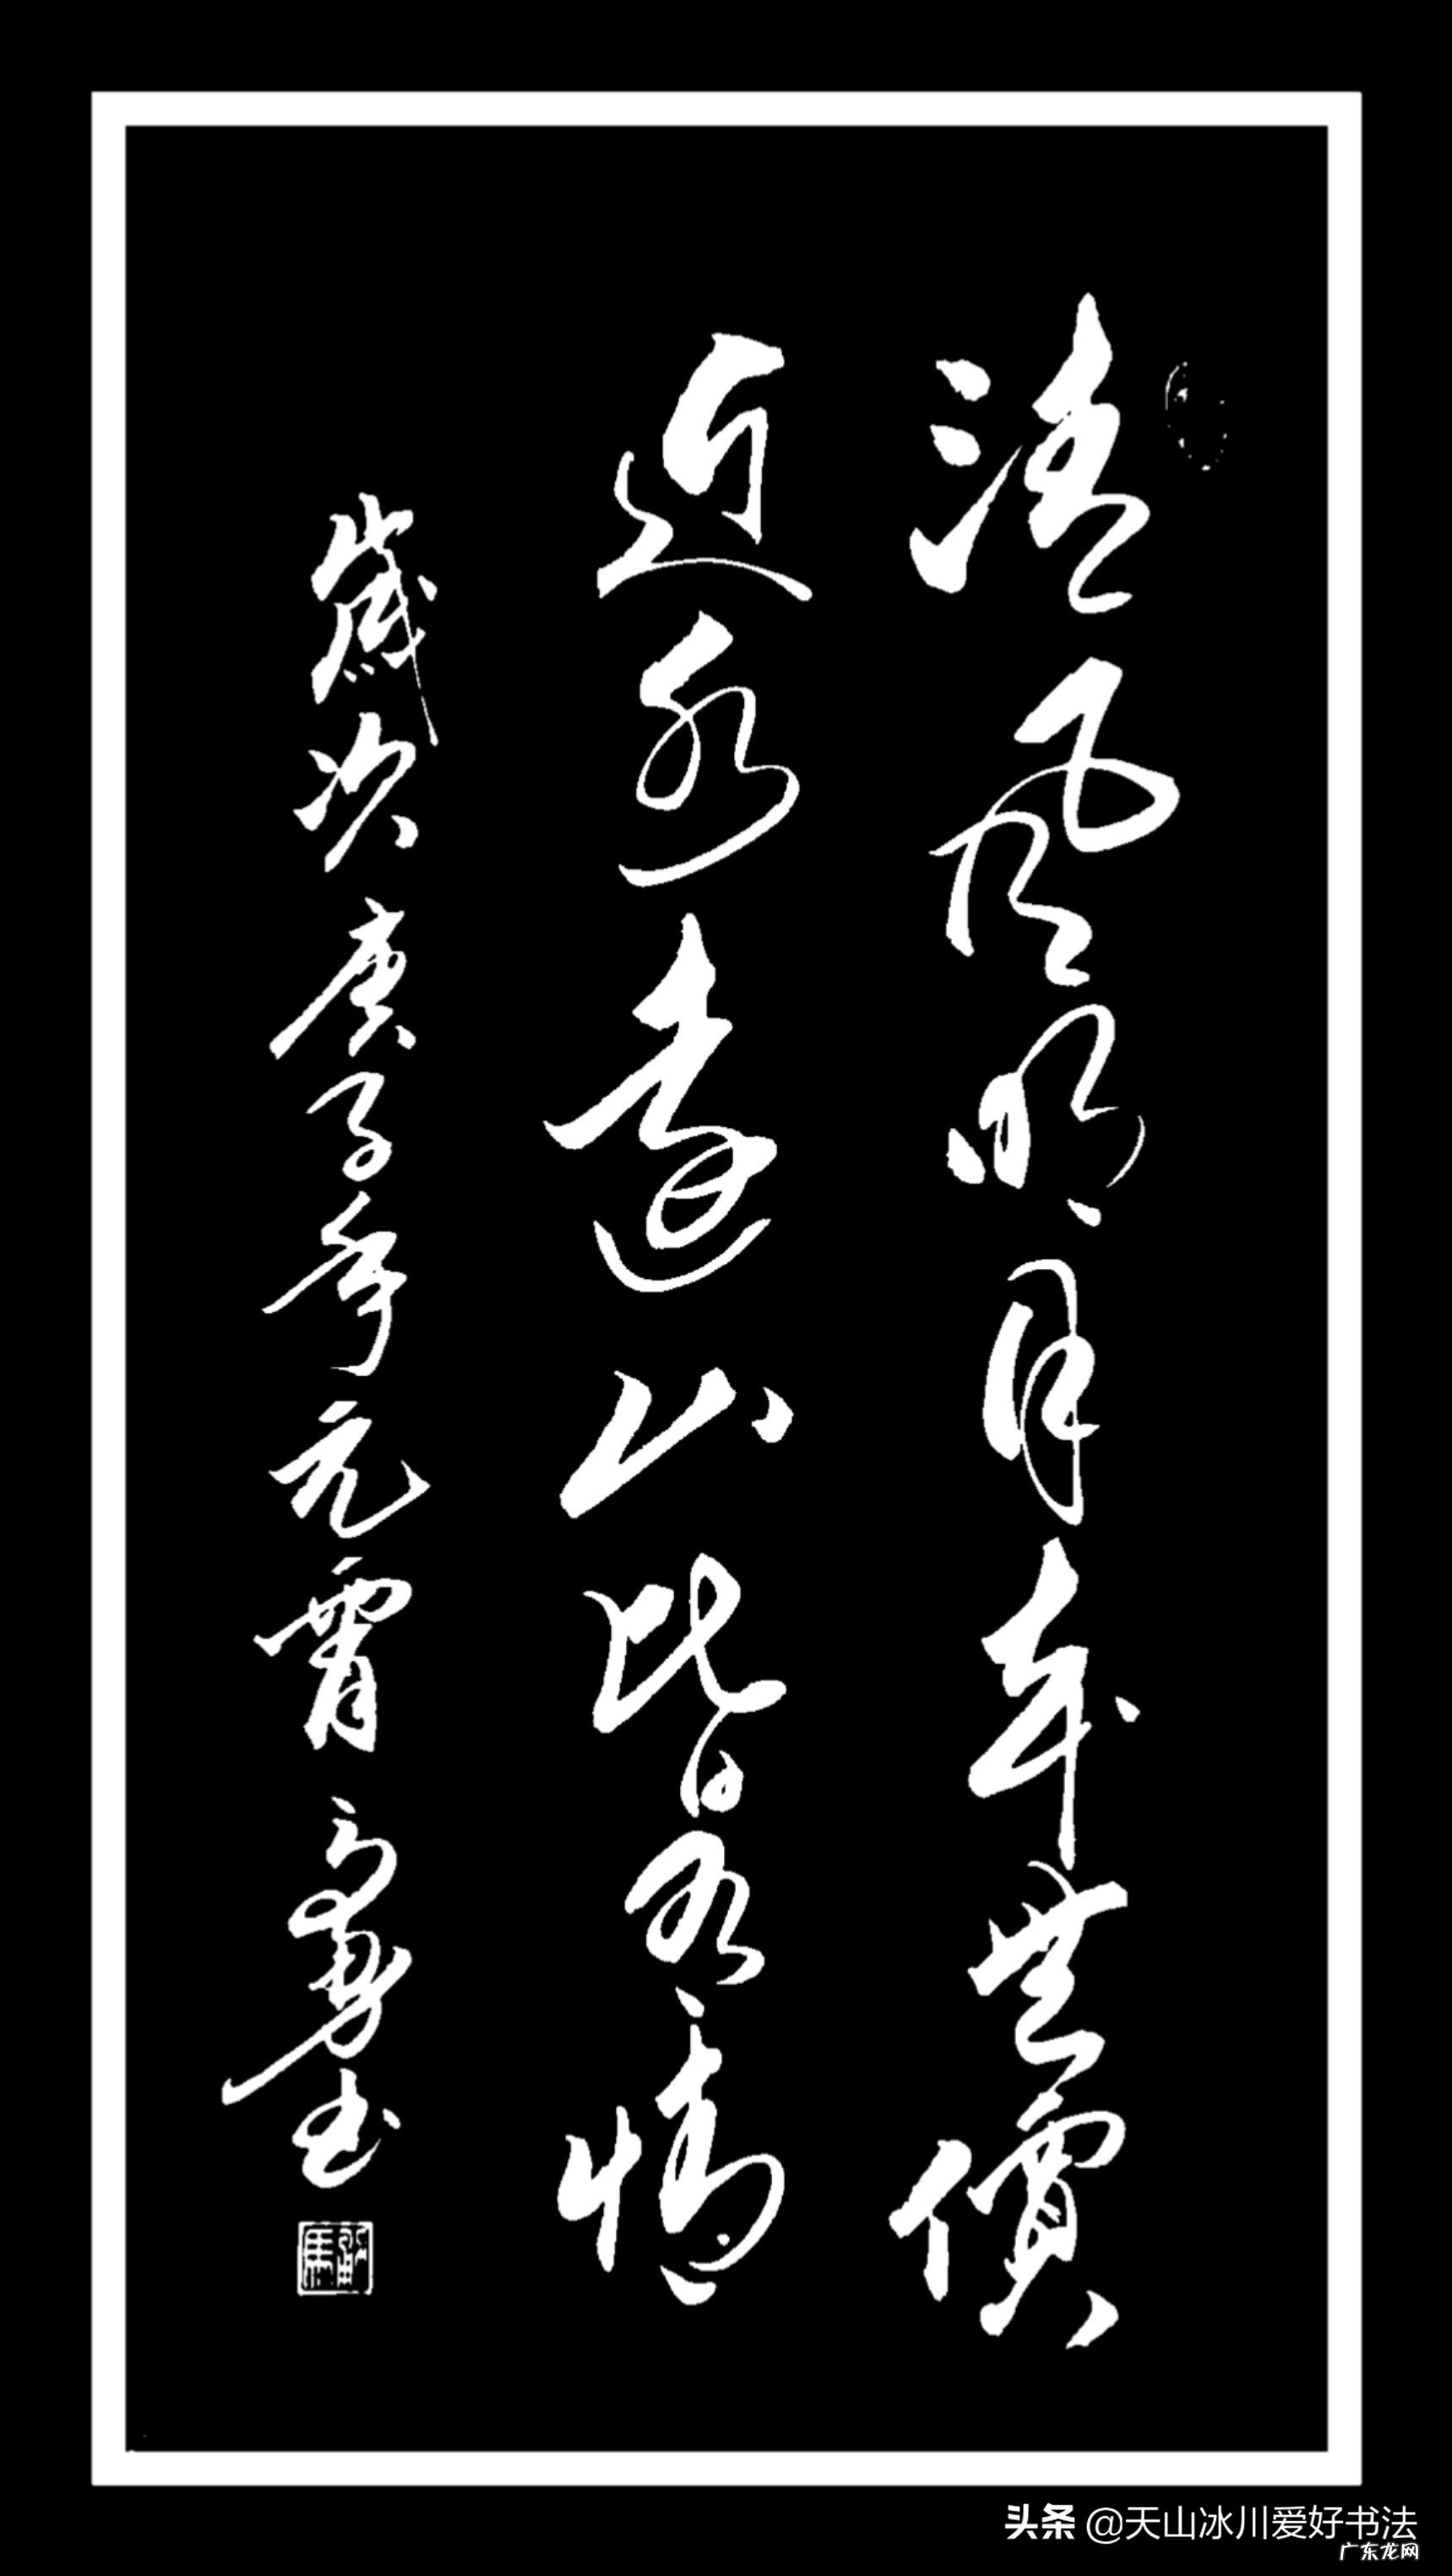 清风明月本無價
近水遠山皆有情
歲次庚子年元宵 之勇书
头条 @天山冰川爱好书法
广东龙网